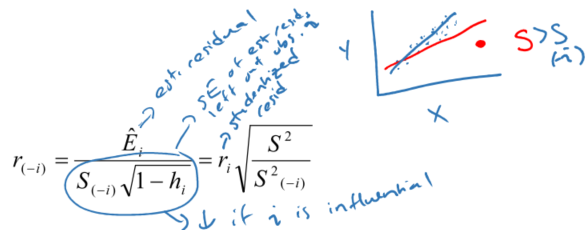 est. residual
SE of est resid,
left out obs. i
studentized
resid
Y
X
S > S(-i)
r(-i) = Êi / S(-i)√1 − hi = ri √S² / S²(-i)
↓ if i is influential